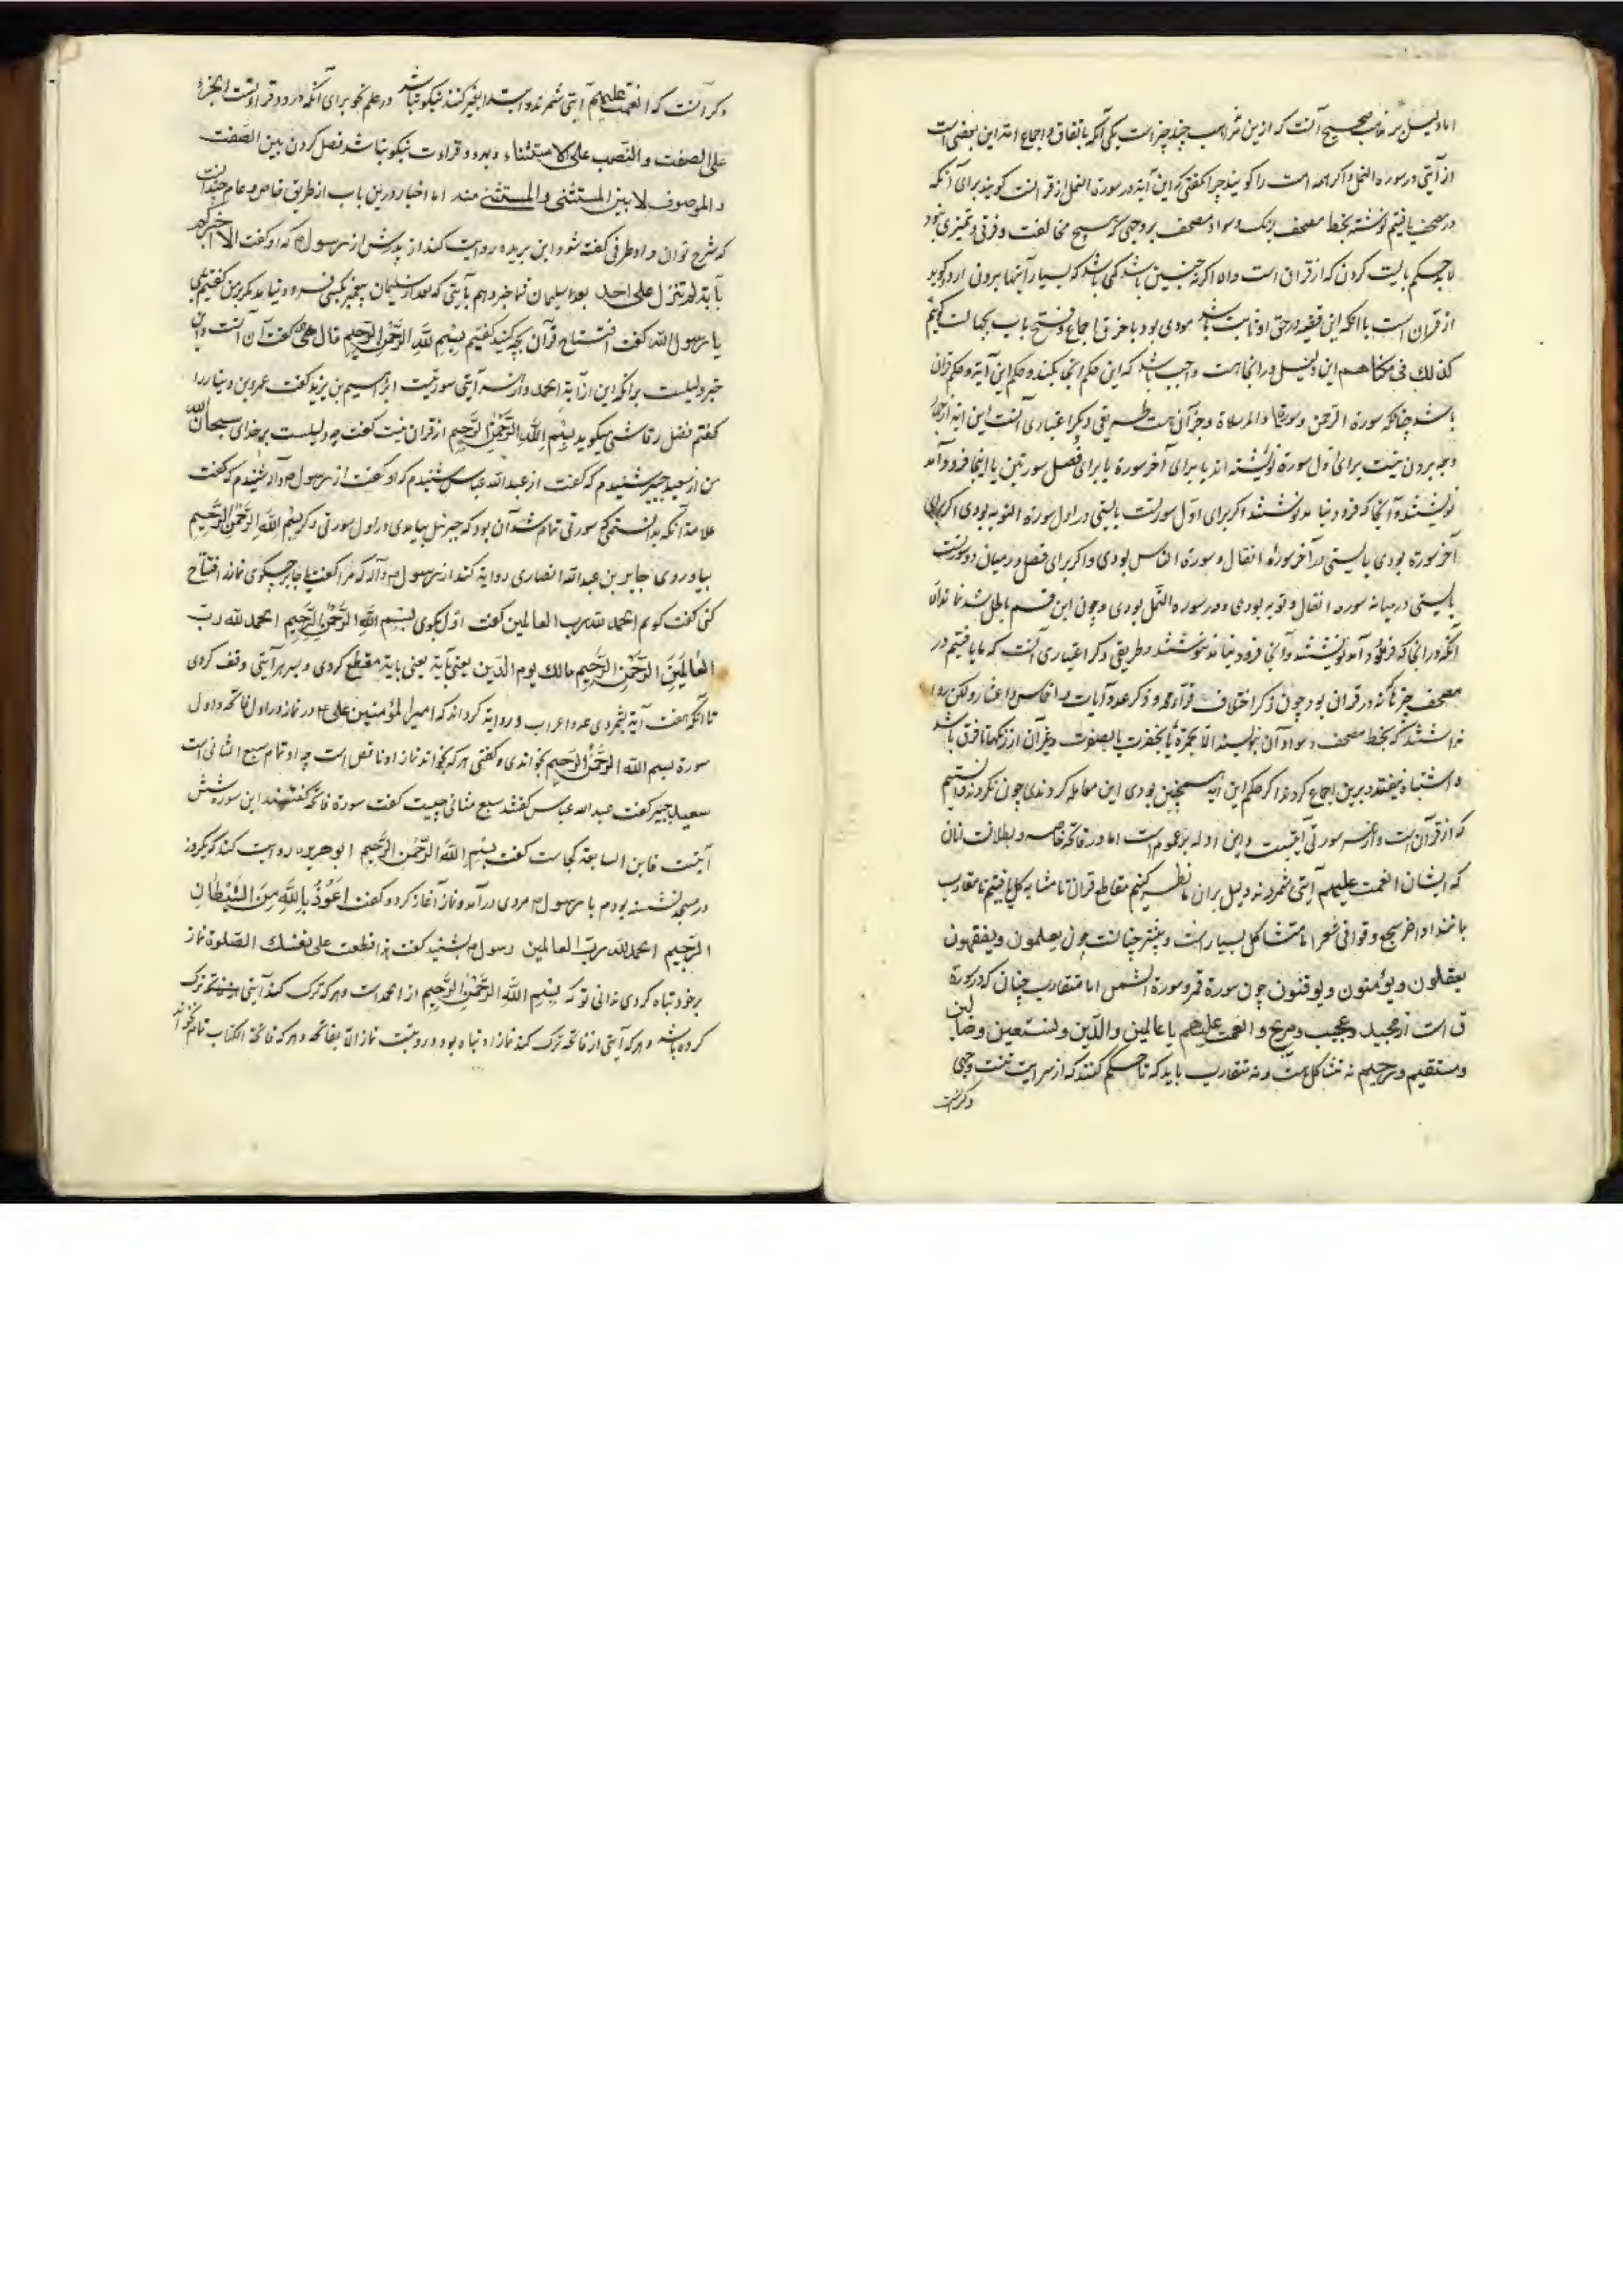 اما دلیل بر مذهب صحیح آنست که ازین مذاهب چند چیز است یکی آنکه باتفاق و اجماع امت این بعضی است
از آیتی در سوره النمل و اکر همه امت را کویند چرا کفتی که این آیة در سورة النمل از قرآنست کویند برای آنکه
در مصحف یافتیم نوشته بخط مصحف برنک و سواد مصحف بر وجهی که هیچ مخالفت و فرقی و تمیزی نبود
لابد حکم بایست کردن که از قرآن است والا اکر نه چنین باشد کمی باشد که بسیار آیتها برون آرد و کوید
از قرآن است با آنکه این قضیه در حق او ثابت باشد مودی بود با خرق اجماع و فتح باب جهالت کوئیم
کذلک فی مسئلتنا هم این دلیل در اینجا هست واجب باشد که این حکم اینجا بکنند و حکم این آیة و حکم قرآن
باشد چنانکه سورة الرحمن و سورة والمرسلات و جز آن هست طریقی دیکر اعتباری آنست این آیة از سه
وجه برون نیست برای اول سورة نوشته اند یا برای آخر سورة یا برای فصل سورتین یا اینجا فرود آمد
نوشتند و آنجا که فرود نیامد ننوشتند اکر برای اول سورتست بایستی در اول سورة التوبه بودی اکر برای
آخر سورة بودی بایستی در آخر سورة انفال و سورة الناس بودی و اکر برای فصل و درمیان دو سورتست
بایستی در میانه سورة انفال و توبه بودی و در سورة النمل نبودی و چون این قسم باطل شد نماند الا
آنکه در آنجا که فرود آمد نوشتند و آنجا فرود نیامد ننوشتند و طریقی دکر اعتباری آنست که ما یافتیم در
مصحف چیزها که نه در قرآن بود چون ذکر اختلاف قراء و ذکر عدد آیات و اخماس و اعشار و لکن روا
نداشتند که بخط مصحف و سواد آن بنویسند الا بحمرة یا بخضرت یا بصفرت و غیر آن از رنکها تا فرق باشد
و اشتباه نیفتد و برین اجماع کردند اکر حکم این آیة همچنین بودی این معامله کردندی چون نکردند دانستیم
که از قرآن است و از هر سورتی آیتیست و این ادله بر عموم است اما در فاتحه خاصه و بطلان آنان
که ایشان انعمت علیهم آیتی شمرند نه دلیل بران ما نظر کنیم مقاطع قرآن تا متشابه کل یافتیم تا متقارب
مانند اواخر سجع و قوافی شعر اما متشاکل بسیارست و بیشتر چنانست چون یعلمون و یفقهون
یعقلون و یؤمنون و یوقنون چون سورة قمر و سورة الشمس اما متقارب چنان که در سورة
ق است از مجید و عجیب و مریج و انعمت علیهم با عالمین والدین و نستعین و ضالین
و مستقیم و رحیم نه متشاکل است و نه متقارب باید که تا حکم کنند که از سر آیت نیست وجهی
دکر آنست
دکر آنست که انعمت علیهم آیتی شمرند و ابتدا بغیر کنند نیکو نباشد در علم نحو برای آنکه در او دو قراءتست الجر
علی الصفت والنصب علی الاستثناء و بهر دو قراءت نیکو نباشد فصل کردن بین الصفت
والموصوف لا بین المستثنی والمستثنی منه اما اخبار درین باب از طریق خاص و عام چندانست
که شرح نتوان داد طرفی کفته شود ابن بریده روایت کند از پدرش از رسول که او کفت الا اخبرکم
بآیة لم تنزل علی احد بعد سلیمان ترا خبر دهم بآیتی که بعد از سلیمان پیغمبر بکسی فرود نیامد مکر بر من کفتیم بلی
یا رسول الله کفت افتتاح قرآن بچه کنید کفتیم بسم الله الرحمن الرحیم قال هی هی کفت آن آنست و این
خبر دلیلست بر آنکه این از آیة الحمد و از هر سورتیست ابراهیم بن یزید کفت عمرو بن دینار را
کفتم فضل رقاشی میکوید بسم الله الرحمن الرحیم از قرآن نیست کفت چه دلیلست بر خدای سبحان الله
من از سعید جبیر شنیدم که کفت از عبدالله عباس شنیدم که او کفت از رسول شنیدم که کفت
علامة آنکه بدانستمی که سورتی تمام شد آن بود که جبرئیل بیامدی و در اول سورتی دکر بسم الله الرحمن الرحیم
بیاوردی جابر بن عبدالله انصاری روایة کند از رسول که مرا کفت یا جابر چکوی نماز افتتاح
کنی کفت کویم الحمد لله رب العالمین کفت اول بکوی بسم الله الرحمن الرحیم الحمد لله رب
العالمین الرحمن الرحیم مالک یوم الدین یعنی آیة یعنی بآیة مقطع کردی و بسر هر آیتی وقف کردی
تا آنکه هفت آیة بشمردی عد اعراب و روایة کرداند که امیر المؤمنین علی در نماز در اول فاتحه و اول
سورة بسم الله الرحمن الرحیم بخواندی و کفتی هر که نخواند نماز او ناقص است چه او تمام سبع المثانی است
سعید جبیر کفت عبدالله عباس کفتند سبع مثانی چیست کفت سورة فاتحه کفتند این سوره شش
آیتست فاین السابعة کجاست کفت بسم الله الرحمن الرحیم ابو هریره روایت کند کو یکروز
در مسجد نشسته بودم با رسول مردی درآمد و نماز آغاز کرد و کفت اعوذ بالله من الشیطان
الرجیم الحمد لله رب العالمین رسول بشنید کفت قطعت علی نفسک الصلوة نماز
بر خود تباه کردی ندانی تو که بسم الله الرحمن الرحیم از الحمد است و هر که ترک کند آیتی ترک
کرده باشد و هر که آیتی از فاتحه ترک کند نماز او تباه بود و درست نماز الا بفاتحه و هر که فاتحة الکتاب تمام نخواند